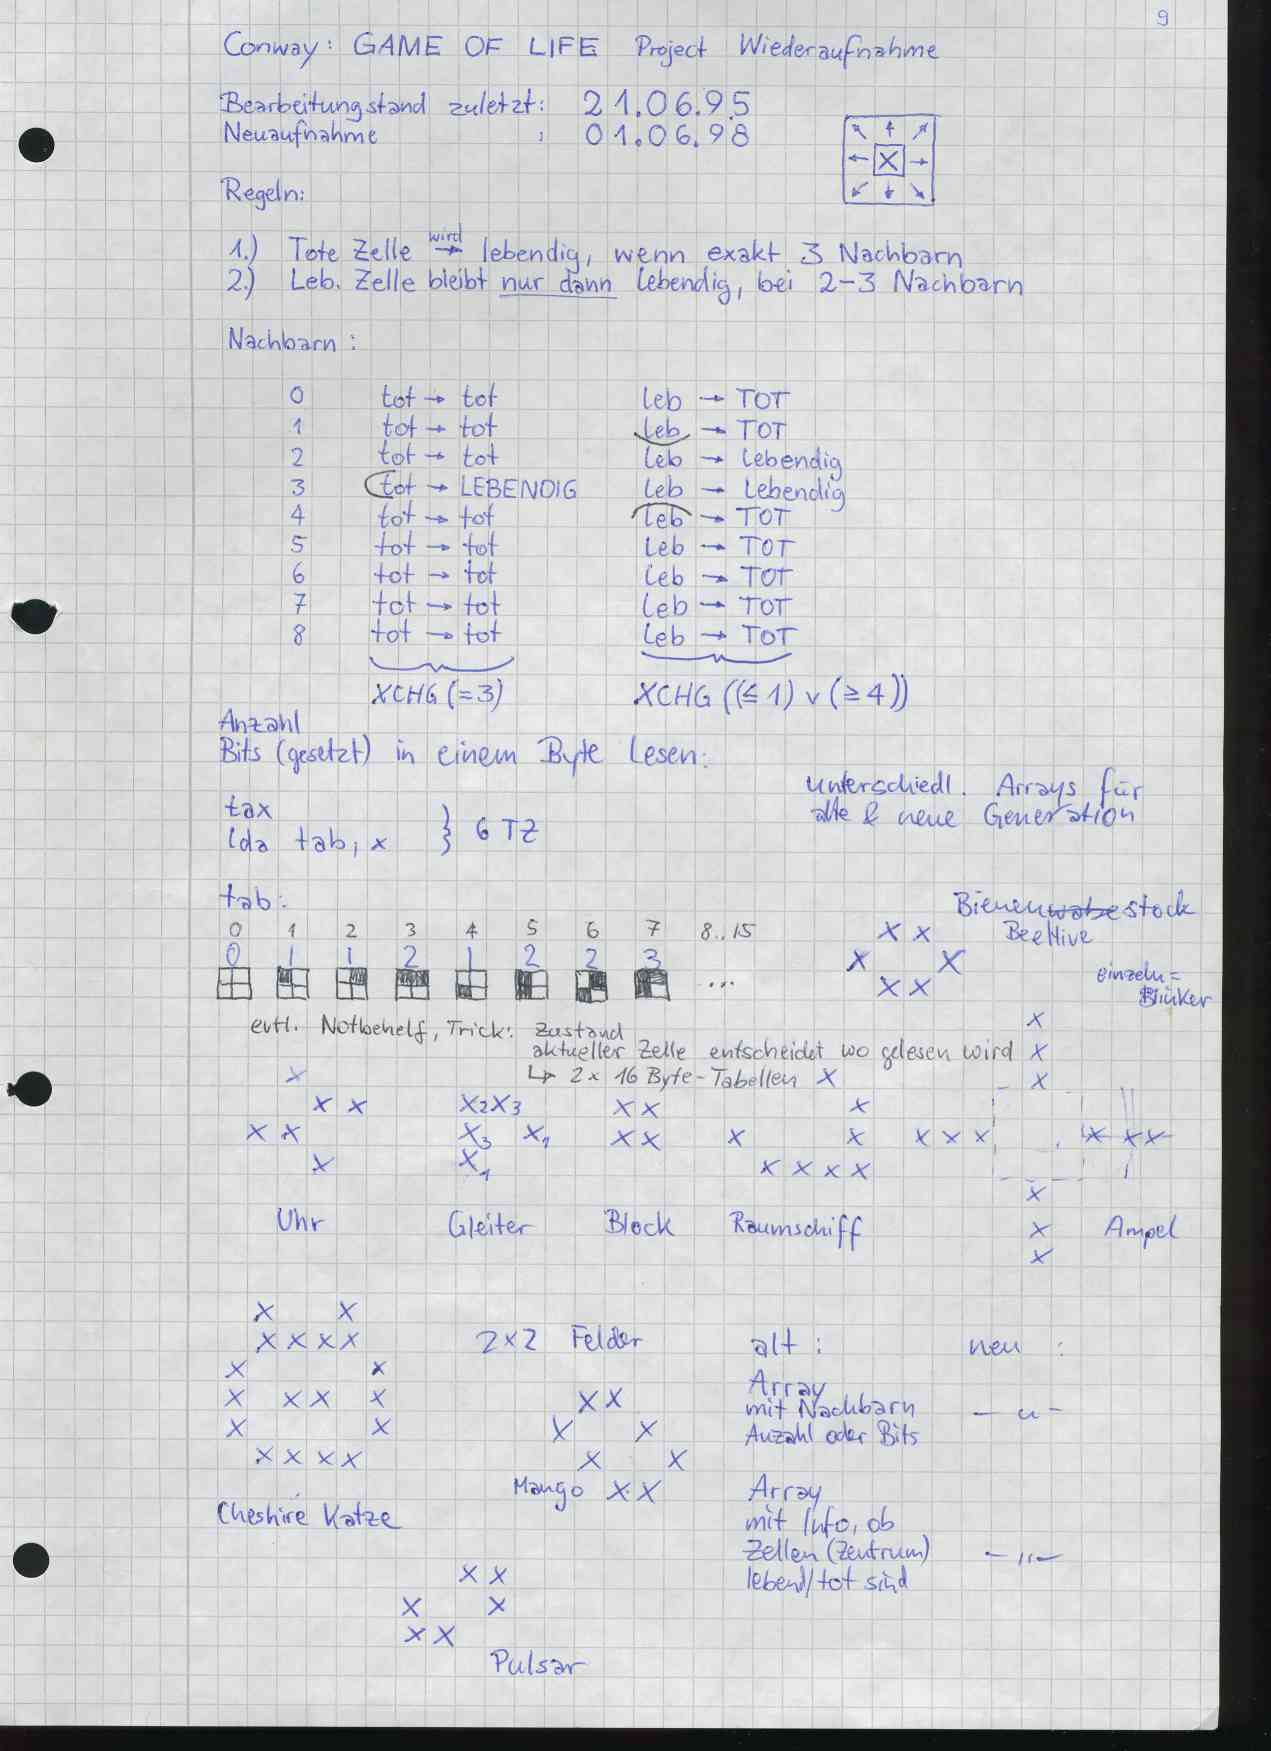 9
Conway: GAME OF LIFE Project Wiederaufnahme
Bearbeitungstand zuletzt: 21.06.95
Neuaufnahme : 01.06.98
X
Regeln:
1.) Tote Zelle wird → lebendig, wenn exakt 3 Nachbarn
2.) Leb. Zelle bleibt nur dann lebendig, bei 2-3 Nachbarn
Nachbarn:
0 tot → tot leb → TOT
1 tot → tot leb → TOT
2 tot → tot leb → lebendig
3 tot → LEBENDIG leb → lebendig
4 tot → tot leb → TOT
5 tot → tot leb → TOT
6 tot → tot leb → TOT
7 tot → tot leb → TOT
8 tot → tot leb → TOT
XCHG (=3) XCHG ((≤1) v (≥4))
Anzahl
Bits (gesetzt) in einem Byte lesen:
unterschiedl. Arrays für
alte & neue Generation
tax
lda tab, x } 6 TZ
tab:
0 1 2 3 4 5 6 7 8..15
0 1 1 2 1 2 2 3
...
Bienenwabestock
BeeHive
X X
X X
X X
einzeln =
Blinker
evtl. Notbehelf, Trick: Zustand
aktueller Zelle entscheidet wo gelesen wird
↳ 2x 16 Byte-Tabellen
X
X
X
X X
X X X
X X
X
Uhr
X2X3
X3 X1
X1
Gleiter
X X
X X
Block
X
X
X X
X X X X
Raumschiff
X X X X X X
X
X
X
Ampel
X X
X X X X
X X
X X X X
X X
X X X X
Cheshire Katze
2x2 Felder
X X
X X
X X
X X
Mango
alt: neu:
Array
mit Nachbarn — " —
Anzahl oder Bits
Array
mit Info, ob
Zellen (Zentrum) — " —
lebend/tot sind
X X
X X
X X
Pulsar